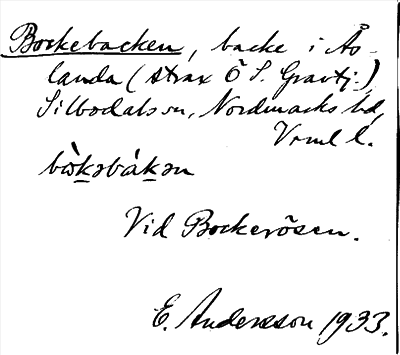 Bockebacken, backe i Å-
landa (strax Ö S. Gravtj.)
Silbodals sn, Nordmarks hd,
Vrml l.
bòkəbákən
Vid Bockerösen.
E. Andersson 1933.